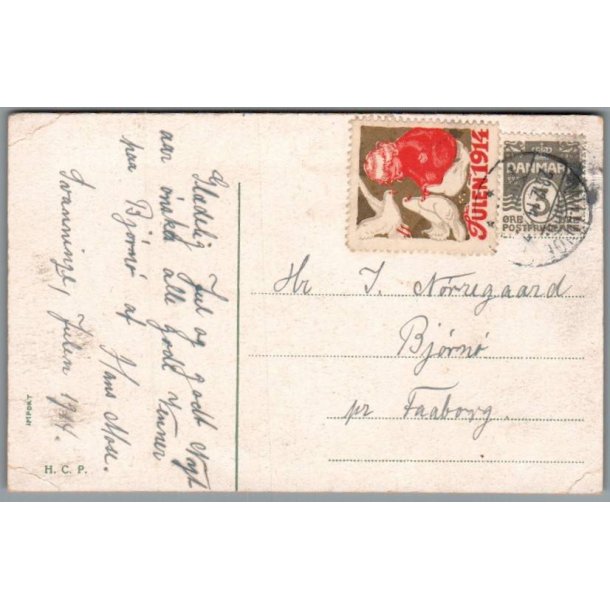 Glædelig Jul og godt Nyt
aar ønskes alle Gode Venner
paa Bjørnø af Hans Mose.
Svanninge, Julen 1914.
H. C. P.
JULEN 1914
DANMARK
3
ØRE ØRE
POSTFRIM
Hr J. Nørregaard
Bjørnø
pr Faaborg.